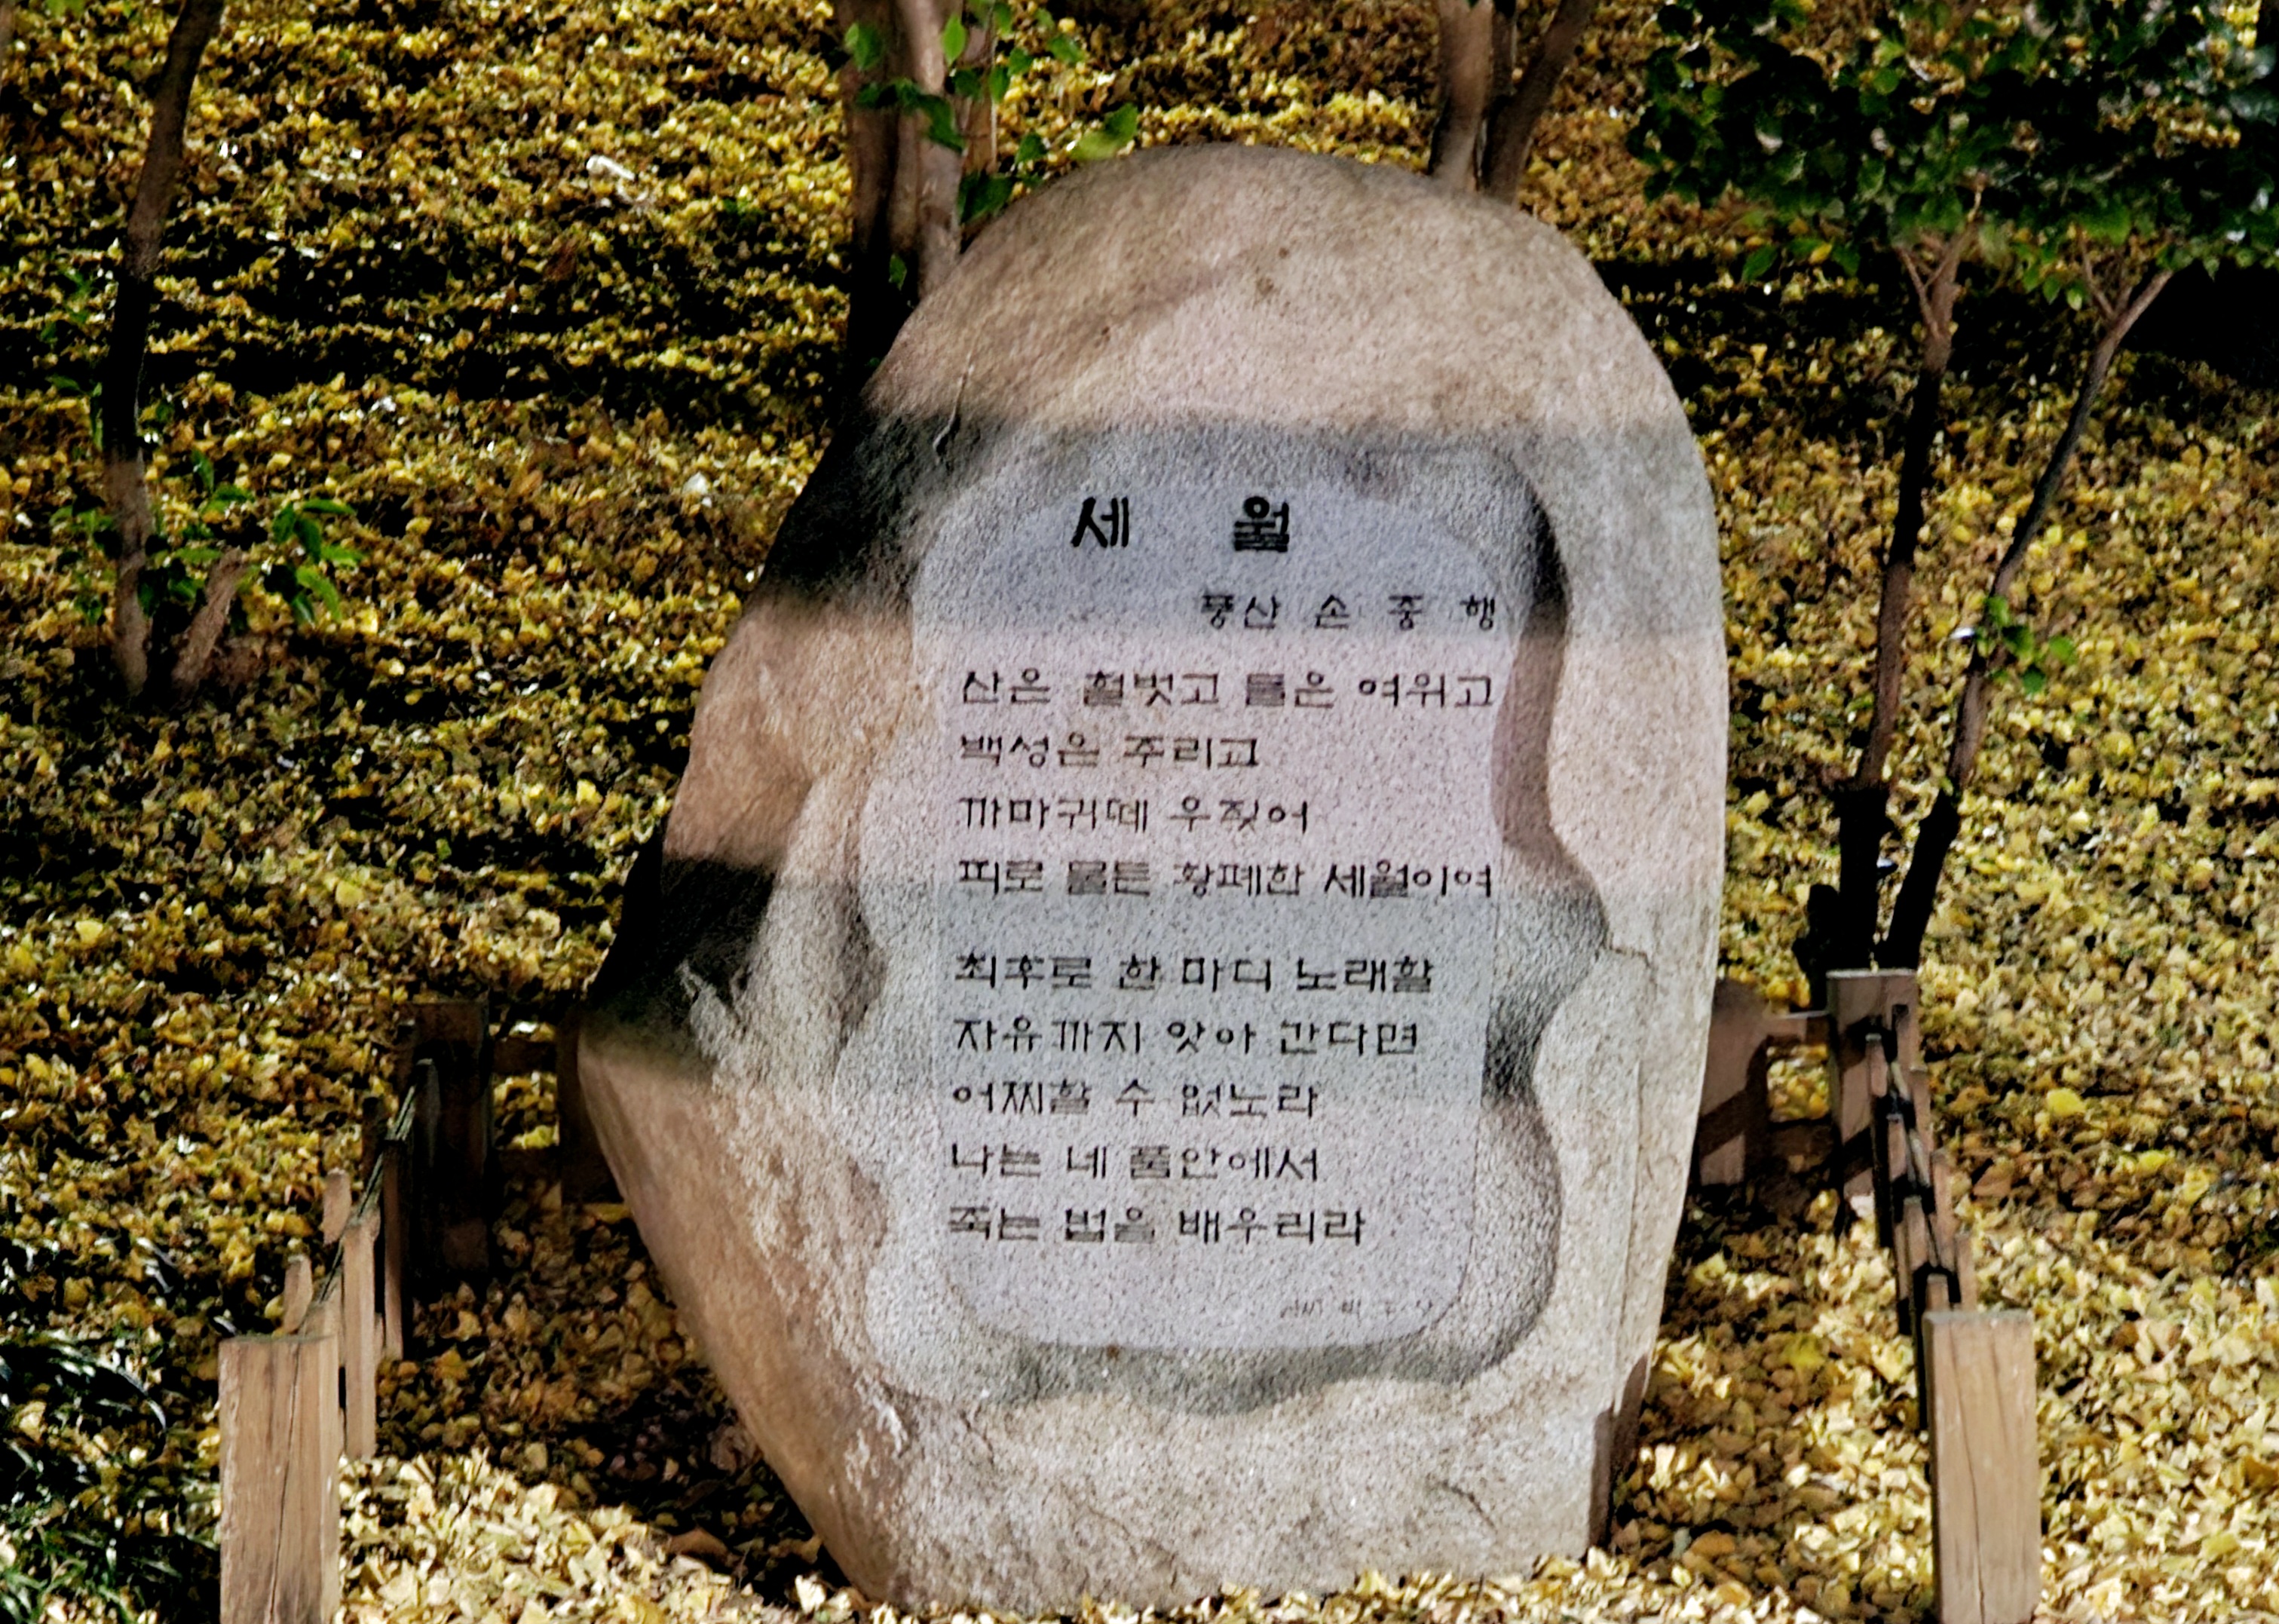 세 월
풍산 손 중 행
산은 헐벗고 들은 여위고
백성은 주리고
까마귀떼 우짖어
피로 물든 황폐한 세월이여
최후로 한 마디 노래할
자유까지 앗아 간다면
어찌할 수 없노라
나는 네 품안에서
죽는 법을 배우리라